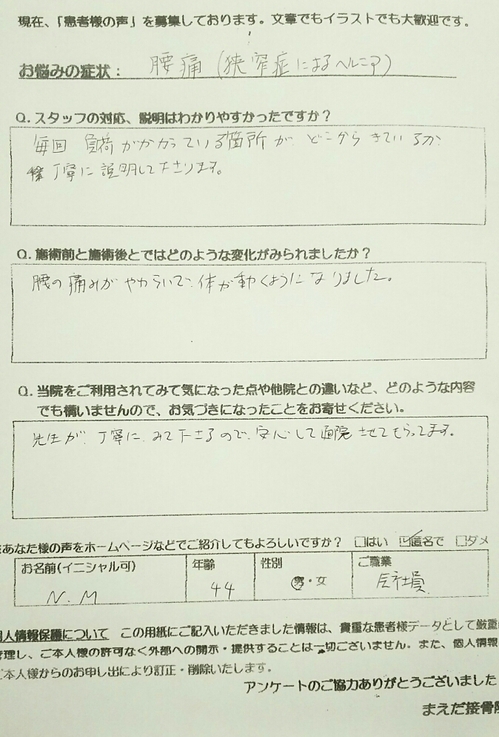 現在、「患者様の声」を募集しております。文章でもイラストでも大歓迎です。
お悩みの症状： 腰痛（狭窄症によるヘルニア）
Q. スタッフの対応、説明はわかりやすかったですか？
毎回 負荷がかかっている箇所が どこからきているか
丁寧に説明して下さります。
Q. 施術前と施術後とではどのような変化がみられましたか？
腰の痛みがやわらいで、体が動くようになりました。
Q. 当院をご利用されてみて気になった点や他院との違いなど、どのような内容
でも構いませんので、お気づきになったことをお寄せください。
先生が、丁寧に、みて下さるので、安心して通院させてもらってます。
あなた様の声をホームページなどでご紹介してもよろしいですか？ □はい ☑匿名で □ダメ
お名前(イニシャル可) 年齢 性別 ご職業
N.M 44 男・女 会社員
個人情報保護について この用紙にご記入いただきました情報は、貴重な患者様データとして厳重
管理し、ご本人様の許可なく外部への開示・提供することは一切ございません。また、個人情報
ご本人様からのお申し出により訂正・削除いたします。
アンケートのご協力ありがとうございました
まえだ接骨院